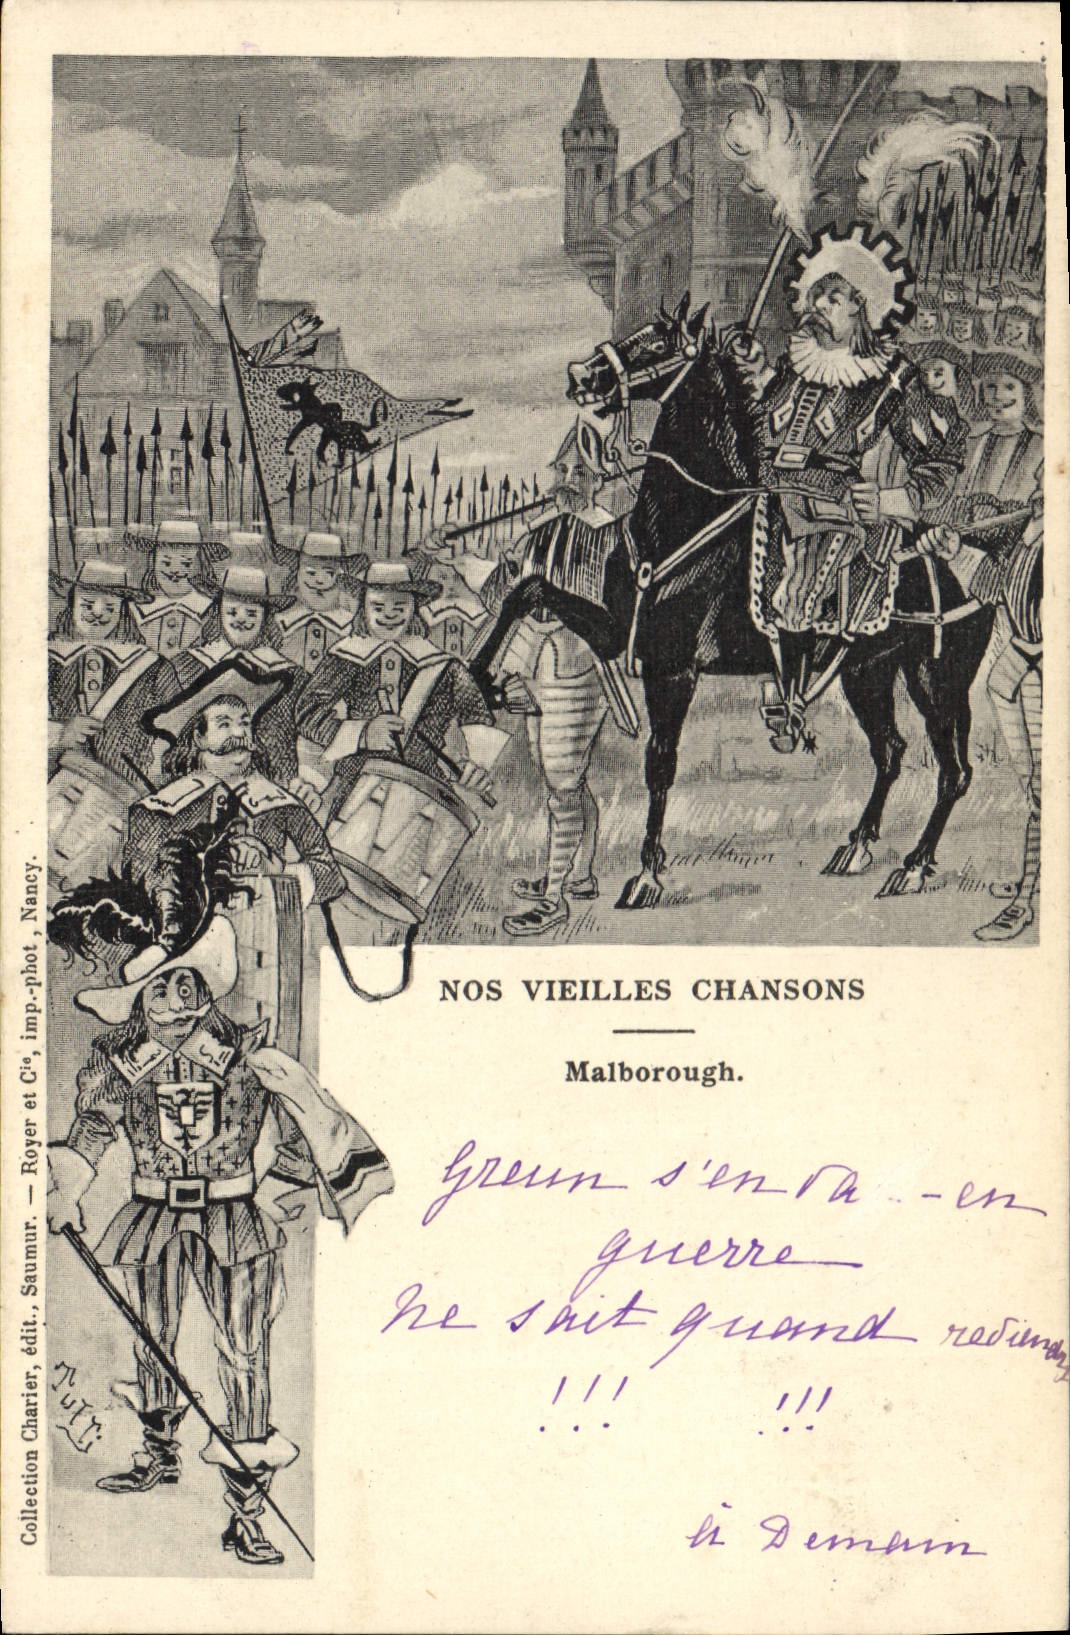 NOS VIEILLES CHANSONS
Malborough.
s'en va - en
guerre
Ne sait quand
!!! !!!
à Demain
Collection Charier, édit., Saumur. — Royer et Cie, imp.-phot., Nancy.